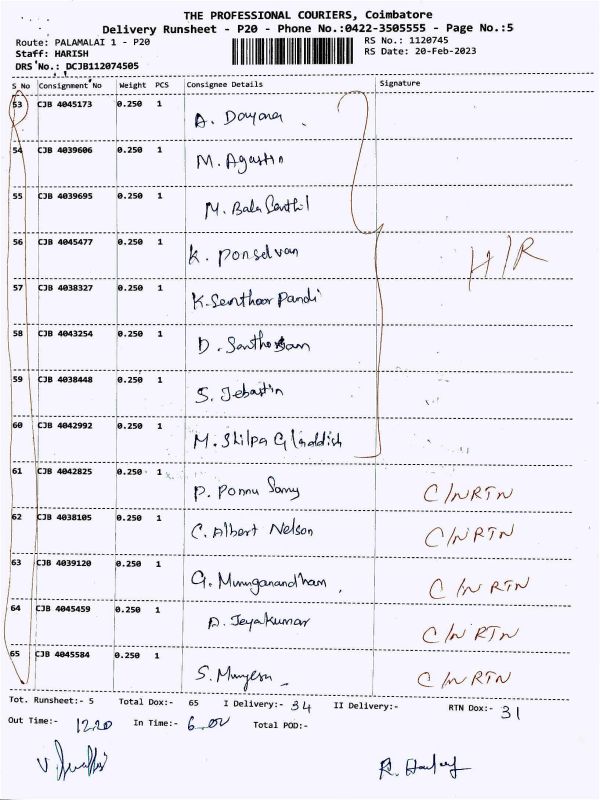 THE PROFESSIONAL COURIERS, Coimbatore
Delivery Runsheet - P20 - Phone No.:0422-3505555 - Page No.:5
Route: PALAMALAI 1 - P20
RS No.: 1120745
Staff: HARISH
RS Date: 20-Feb-2023
DRS No.: DCJB112074505
S No Consignment No Weight PCS Consignee Details Signature
53 CJB 4045173 0.250 1 A. Dayana
54 CJB 4039606 0.250 1 M. Agastin
55 CJB 4039695 0.250 1 M. Bala Senthil
56 CJB 4045477 0.250 1 K. Ponselvan H/R
57 CJB 4038327 0.250 1 K. Senthoor Pandi
58 CJB 4043254 0.250 1 D.
59 CJB 4038448 0.250 1 S. Jebastin
60 CJB 4042992 0.250 1 M. Shilpa
61 CJB 4042825 0.250 1 P. Ponnu Samy C/N RTN
62 CJB 4038105 0.250 1 C. Albert Nelson C/N RTN
63 CJB 4039120 0.250 1 G. Muruganandham C/N RTN
64 CJB 4045459 0.250 1 A. Jeyakumar C/N RTN
65 CJB 4045584 0.250 1 S. Murugesan C/N RTN
Tot. Runsheet:- 5 Total Dox:- 65 I Delivery:- 34 II Delivery:- RTN Dox:- 31
Out Time:- 12.20 In Time:- 6.00 Total POD:-